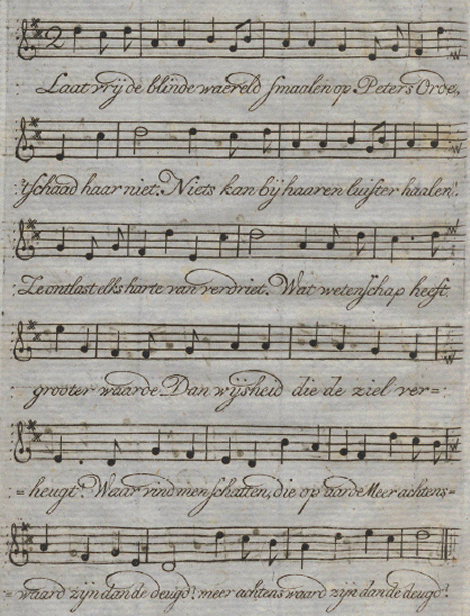 Laat vrij de blinde waereld smaalen op Peters Orde,
't schaad haar niet: Niets kan bij haaren luister haalen!
Ze ontlast elks harte van verdriet. Wat wetenschap heeft
grooter waarde Dan wijsheid die de ziel ver=
=heugt? Waar vind men schatten, die op aarde Meer achtens=
=waard zijn dan de deugd? meer achtens waard zijn dan de deugd?